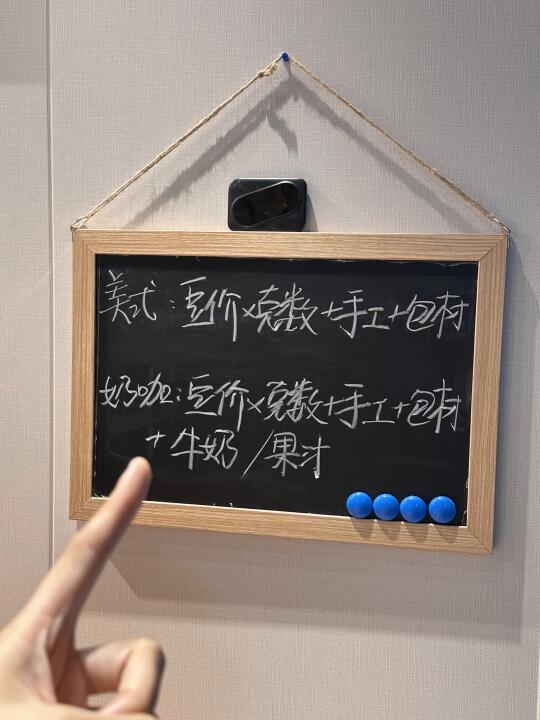 美式：豆价×克数+手工+包材
奶咖：豆价×克数+手工+包材
+牛奶/果汁